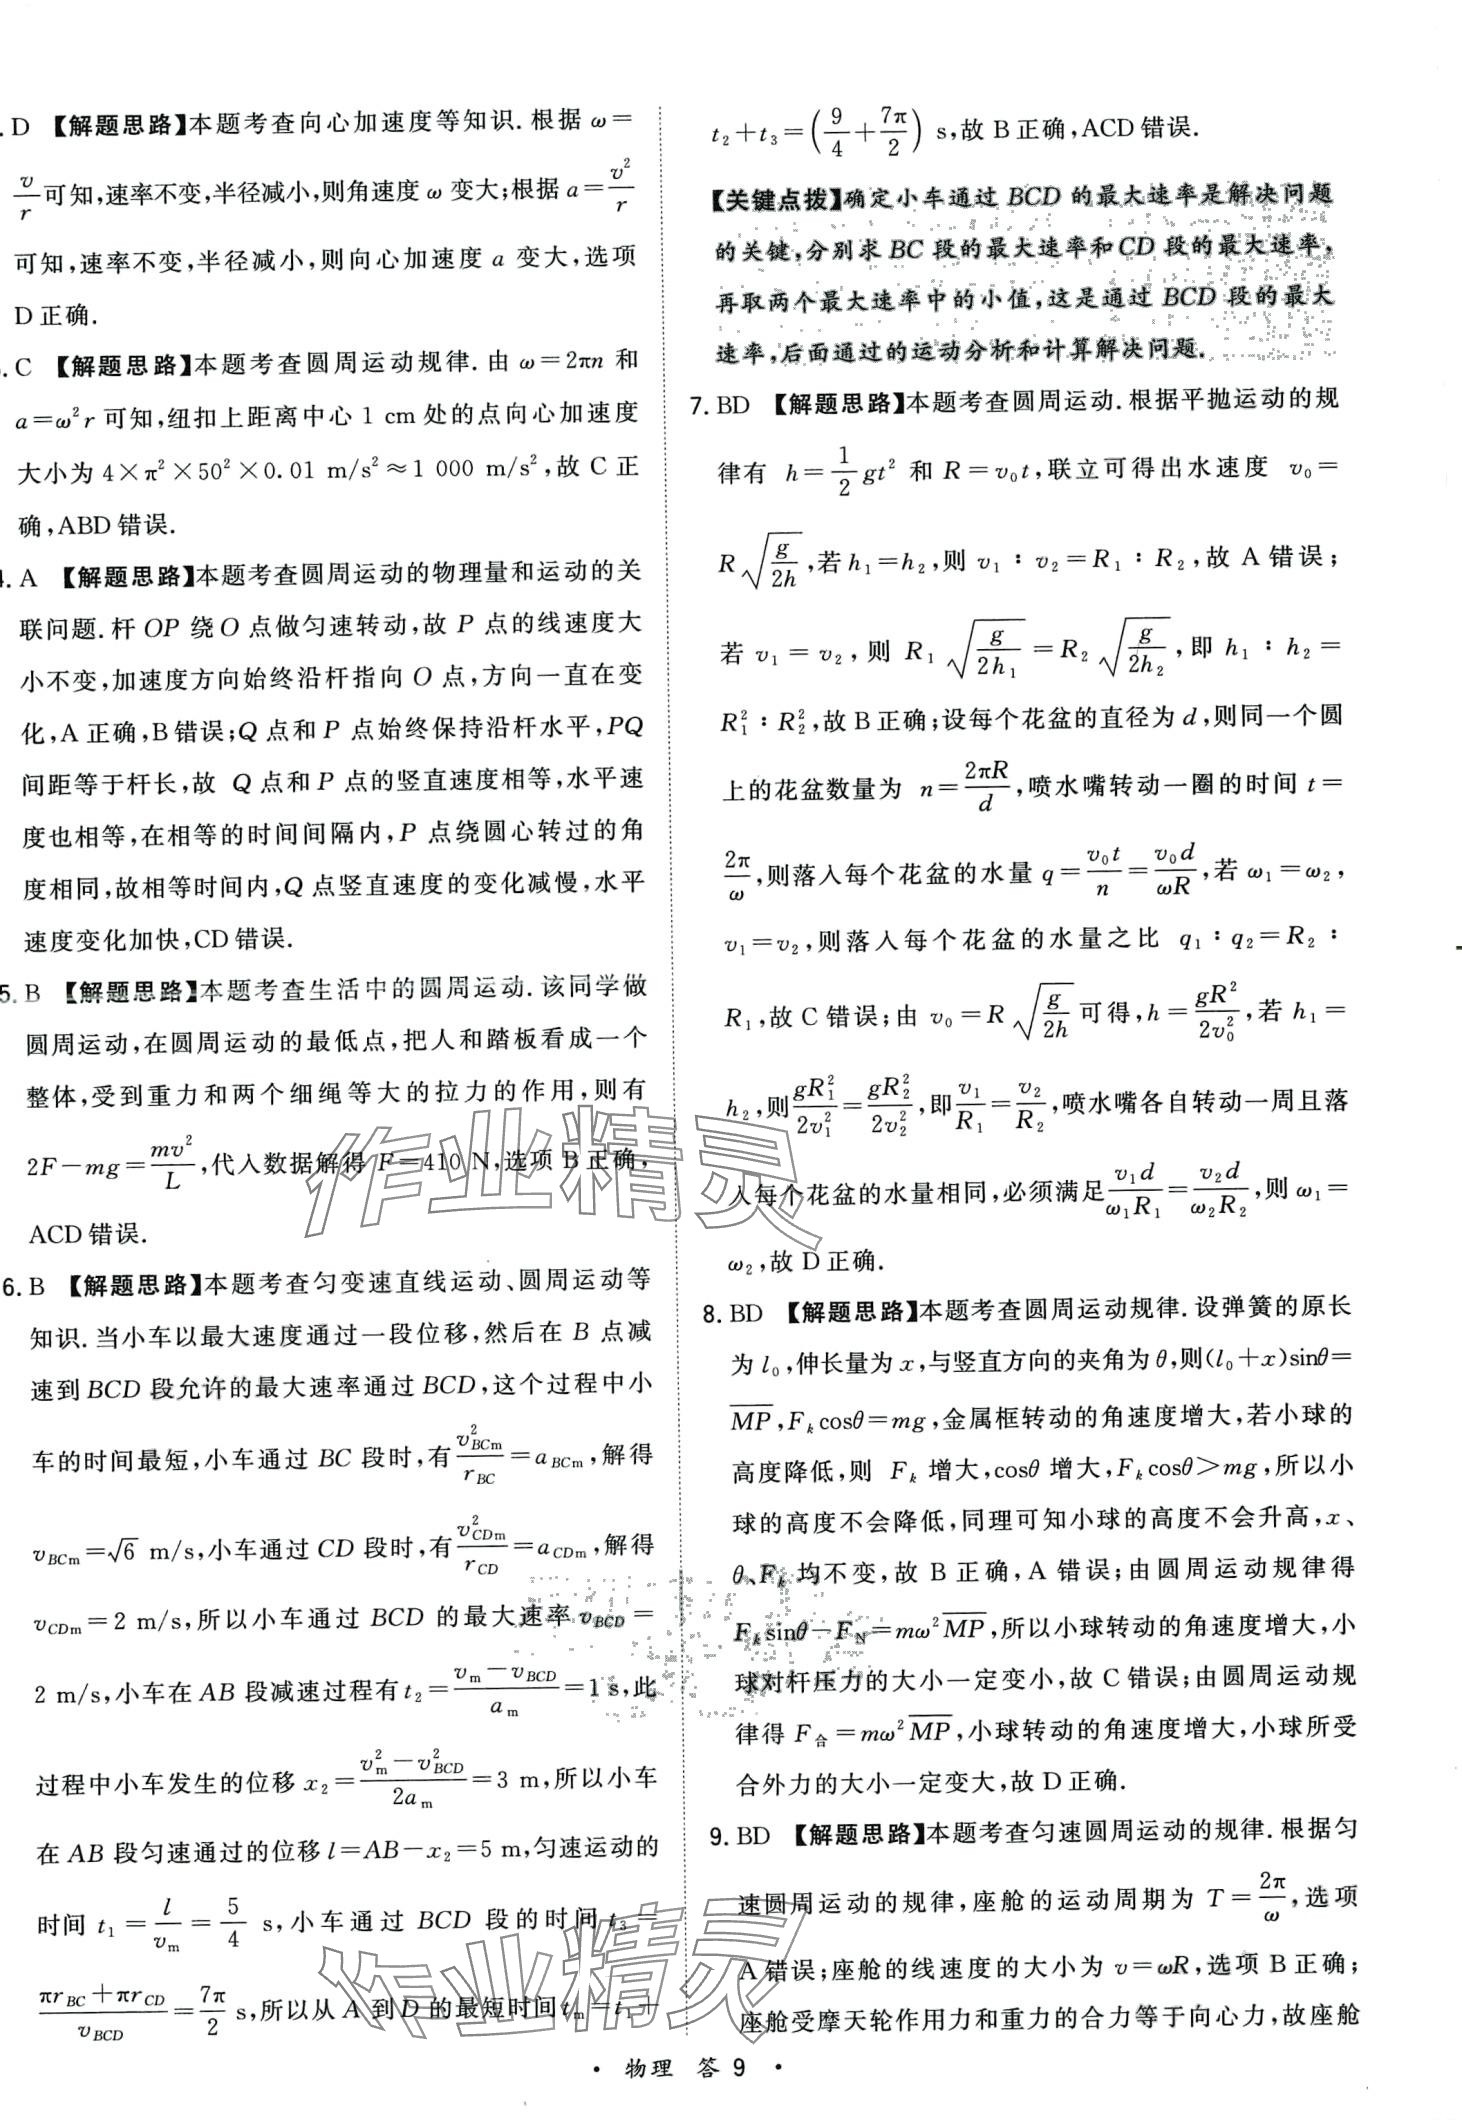 . D 【解题思路】本题考查向心加速度等知识. 根据 ω=
v/r 可知,速率不变,半径减小,则角速度 ω 变大;根据 a=v²/r
可知,速率不变,半径减小,则向心加速度 a 变大,选项
D 正确.
. C 【解题思路】本题考查圆周运动规律. 由 ω=2πn 和
a=ω²r 可知,纽扣上距离中心 1 cm 处的点向心加速度
大小为 4×π²×50²×0.01 m/s²≈1 000 m/s²,故 C 正
确,ABD 错误.
4. A 【解题思路】本题考查圆周运动的物理量和运动的关
联问题. 杆 OP 绕 O 点做匀速转动,故 P 点的线速度大
小不变,加速度方向始终沿杆指向 O 点,方向一直在变
化,A 正确,B 错误;Q 点和 P 点始终保持沿杆水平,PQ
间距等于杆长,故 Q 点和 P 点的竖直速度相等,水平速
度也相等,在相等的时间间隔内,P 点绕圆心转过的角
度相同,故相等时间内,Q 点竖直速度的变化减慢,水平
速度变化加快,CD 错误.
5. B 【解题思路】本题考查生活中的圆周运动. 该同学做
圆周运动,在圆周运动的最低点,把人和踏板看成一个
整体,受到重力和两个细绳等大的拉力的作用,则有
2F-mg=mv²/L,代入数据解得 F=410 N,选项 B 正确,
ACD 错误.
6. B 【解题思路】本题考查匀变速直线运动、圆周运动等
知识. 当小车以最大速度通过一段位移,然后在 B 点减
速到 BCD 段允许的最大速率通过 BCD,这个过程中小
车的时间最短,小车通过 BC 段时,有 v²_BCm/r_BC=a_BCm,解得
v_BCm=√6 m/s,小车通过 CD 段时,有 v²_CDm/r_CD=a_CDm,解得
v_CDm=2 m/s,所以小车通过 BCD 的最大速率 v_BCD=
2 m/s,小车在 AB 段减速过程有 t₂=(v_m-v_BCD)/a_m=1 s,此
过程中小车发生的位移 x₂=(v²_m-v²_BCD)/2a_m=3 m,所以小车
在 AB 段匀速通过的位移 l=AB-x₂=5 m,匀速运动的
时间 t₁=l/v_m=5/4 s,小车通过 BCD 段的时间 t₃=
(πr_BC+πr_CD)/v_BCD=7π/2 s,所以从 A 到 D 的最短时间 t_m=t₁+
t₂+t₃=(9/4+7π/2) s,故 B 正确,ACD 错误.
【关键点拨】确定小车通过 BCD 的最大速率是解决问题
的关键,分别求 BC 段的最大速率和 CD 段的最大速率,
再取两个最大速率中的小值,这是通过 BCD 段的最大
速率,后面通过的运动分析和计算解决问题.
7. BD 【解题思路】本题考查圆周运动. 根据平抛运动的规
律有 h=1/2 gt² 和 R=v₀t,联立可得出水速度 v₀=
R√(g/2h),若 h₁=h₂,则 v₁∶v₂=R₁∶R₂,故 A 错误;
若 v₁=v₂,则 R₁√(g/2h₁)=R₂√(g/2h₂),即 h₁∶h₂=
R₁²∶R₂²,故 B 正确;设每个花盆的直径为 d,则同一个圆
上的花盆数量为 n=2πR/d,喷水嘴转动一圈的时间 t=
2π/ω,则落入每个花盆的水量 q=v₀t/n=v₀d/ωR,若 ω₁=ω₂,
v₁=v₂,则落入每个花盆的水量之比 q₁∶q₂=R₂∶
R₁,故 C 错误;由 v₀=R√(g/2h) 可得,h=gR²/2v₀²,若 h₁=
h₂,则 gR₁²/2v₁²=gR₂²/2v₂²,即 v₁/R₁=v₂/R₂,喷水嘴各自转动一周且落
入每个花盆的水量相同,必须满足 v₁d/ω₁R₁=v₂d/ω₂R₂,则 ω₁=
ω₂,故 D 正确.
8. BD 【解题思路】本题考查圆周运动规律. 设弹簧的原长
为 l₀,伸长量为 x,与竖直方向的夹角为 θ,则(l₀+x)sinθ=
M̅P̅,F_k cosθ=mg,金属框转动的角速度增大,若小球的
高度降低,则 F_k 增大,cosθ 增大,F_k cosθ>mg,所以小
球的高度不会降低,同理可知小球的高度不会升高,x、
θ、F_k 均不变,故 B 正确,A 错误;由圆周运动规律得
F_k sinθ-F_N=mω²M̅P̅,所以小球转动的角速度增大,小
球对杆压力的大小一定变小,故 C 错误;由圆周运动规
律得 F合=mω²M̅P̅,小球转动的角速度增大,小球所受
合外力的大小一定变大,故 D 正确.
9. BD 【解题思路】本题考查匀速圆周运动的规律. 根据匀
速圆周运动的规律,座舱的运动周期为 T=2π/ω,选项
A 错误;座舱的线速度的大小为 v=ωR,选项 B 正确;
座舱受摩天轮作用力和重力的合力等于向心力,故座舱
· 物理 答 9 ·
作业精灵
作业精灵